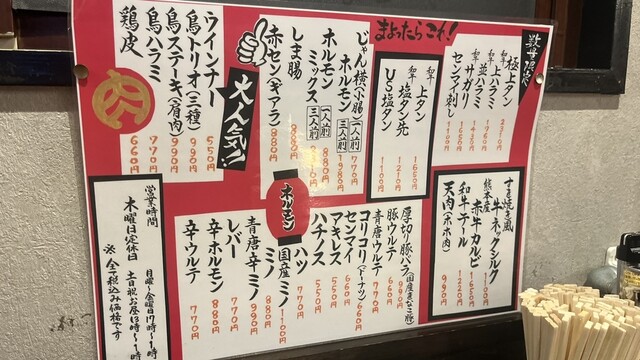 まよったらこれ！
数量限定
極上タン 2310円
和牛上ハラミ 1980円
和牛並ハラミ
和牛サガリ 1430円
センマイ刺し 1100円
和牛上タン 1650円
和牛塩タン先 1210円
US塩タン 1100円
じゃん横ホルモン(小腸) 一人前 770円 三人前 1980円
ホルモンミックス 一人前 880円 三人前
しま腸 880円
赤セン(ギアラ) 880円
大人気!!
ウインナー 550円
鳥トリオ(三種) 990円
鳥ステーキ(肩肉) 990円
鳥ハラミ 770円
鶏皮 660円
すき焼き風
牛ネックシルク 1190円
熊本産赤牛カルビ 1650円
和牛テール 1220円
天肉(ホホ肉)
厚切り豚バラ(国産きなこ豚) 990円
豚ウルテ
青唐ウルテ 770円
コリコリ(ドーナツ) 660円
センマイ 660円
アキレス 550円
ハチノス 550円
ホルモン
ハツ 770円
国産ミノ 1100円
ミノ 880円
青唐辛ミノ 990円
レバー 770円
辛ホルモン 880円
辛ウルテ 770円
営業時間
日曜〜金曜日17時〜
土日祝お昼13時〜
木曜日定休日
※全て税込み価格です